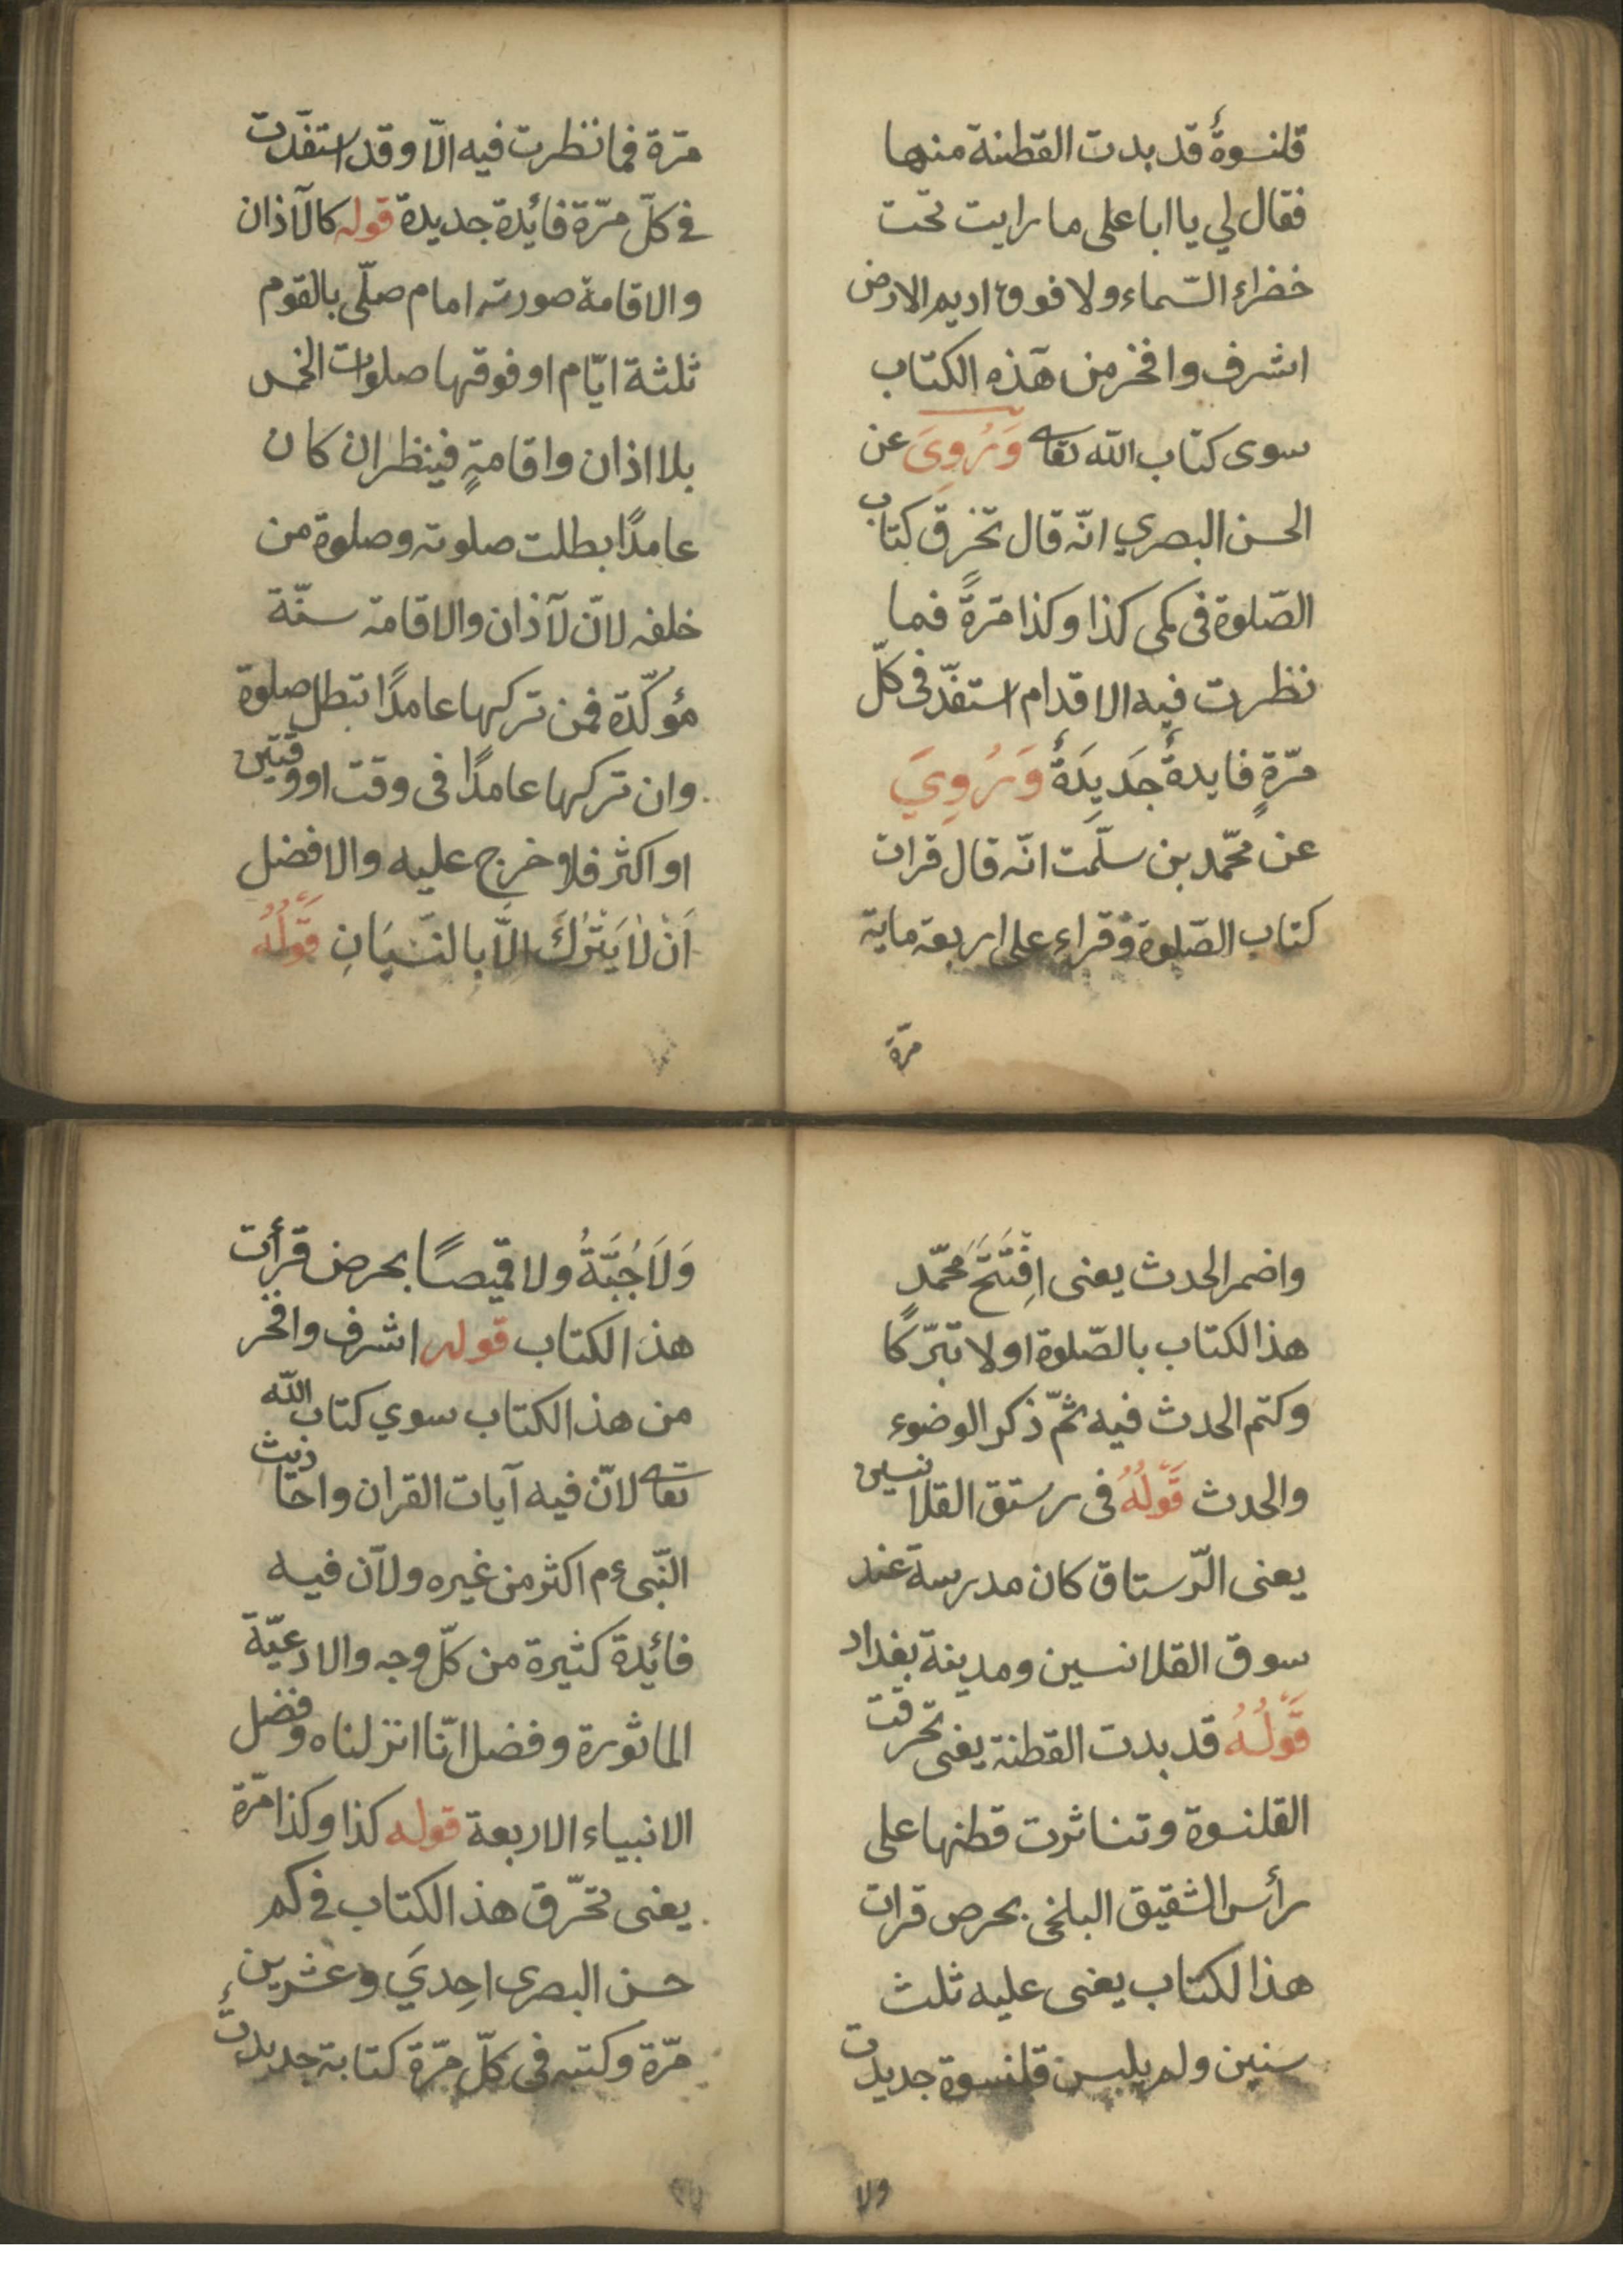 قلنسوةٌ قد بدت القطنة منها
فقال لي يا ابا على ما رايت تحت
خضراء السّماء ولا فوق اديم الارض
اشرف وافخر من هذه الكتاب
سوى كتاب الله تعا وَرُوِىَ عن
الحسن البصري انّه قال تخرق كتاب
الصّلوة فى كمى كذا وكذا مرّةً فما
نظرت فيه الا قدام استفدّ فى كلّ
مرّةٍ فايدةٌ جَدِيدَةٌ وَرُوِيَ
عن محّمد بن سلّمت انّه قال قرات
كتاب الصّلوة وقراء على اربعة ماية
مرّة
مرّة فما نظرت فيه الّا وقد استفدّت
في كلّ مرّة فائدة جديدة قوله كالآذان
والاقامة صورته امام صلّى بالقوم
ثلثة ايّام او فوقها صلوات الخمس
بلا اذان واقامةٍ فينظر ان كان
عامدًا بطلت صلوته وصلوة من
خلفه لانّ لآذان والاقامة سنّة
مؤكّدة فمن تركها عامدًا تبطل صلوة
وان تركها عامدًا فى وقت او وقتين
او اكثر فلا خرج عليه والافضل
اَنْ لاٰ يَتْرُكَ اِلَّا بالنّسيَانِ قَوْلُهُ
واضمر الحدث يعنى اِفْتَتَحَ محّمد
هذ الكتاب بالصّلوة اولا تبرّكًا
وكتم الحدث فيه ثمّ ذكر الوضوء
والحدث قَوْلُهُ فى رستق القلانسين
يعنى الرّستاق كان مدرسة عند
سوق القلانسين ومدينة بغداد
قَوْلُهُ قد بدت القطنة يعنى تحرقت
القلنسوة وتناثرت قطنها على
رأس الشقيق البلخى بحرص قرات
هذ الكتاب يعنى عليه ثلث
سنين ولم يلبس قلنسوة جديدت
ولا
وَلَا جُبَّةُ ولا قميصًا بحرض قرأت
هذ الكتاب قوله اشرف وافخر
من هذ الكتاب سوي كتاب الله
تعا لانّ فيه آيات القران واحاذيث
النّبى ءم اكثر من غيره ولآن فيه
فائدة كثيرة من كلّ وجه والادعيّة
الماثورة وفضل انّا انزلناه وفضل
الانبياء الاربعة قوله كذا وكذا مرّة
يعنى تحرّق هذ الكتاب في كم
حسن البصرى احِديَ وعشرين
مرّة وكتبه فى كلّ مرّة كتابة جديدت